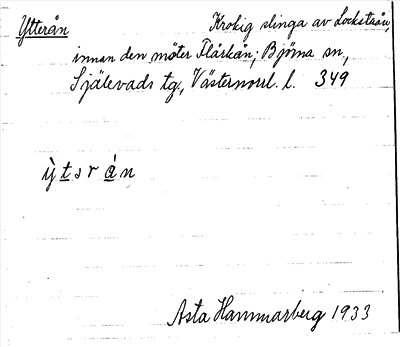 Ytterån Krokig slinga av Lockstaån,
innan den möter Flärkån; Björna sn,
Själevads tg., Västernorrl. l. 349
ỳ t s r á n
Asta Hammarberg 1933